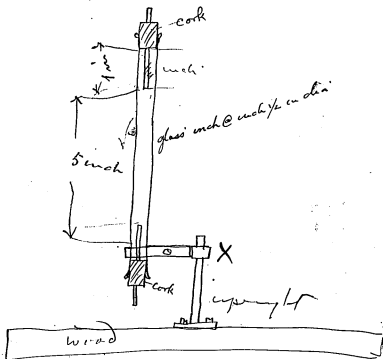 cork
1 inch
inch
glass inch @ inch ½ in dia
5 inch
X
cork
upright
wood